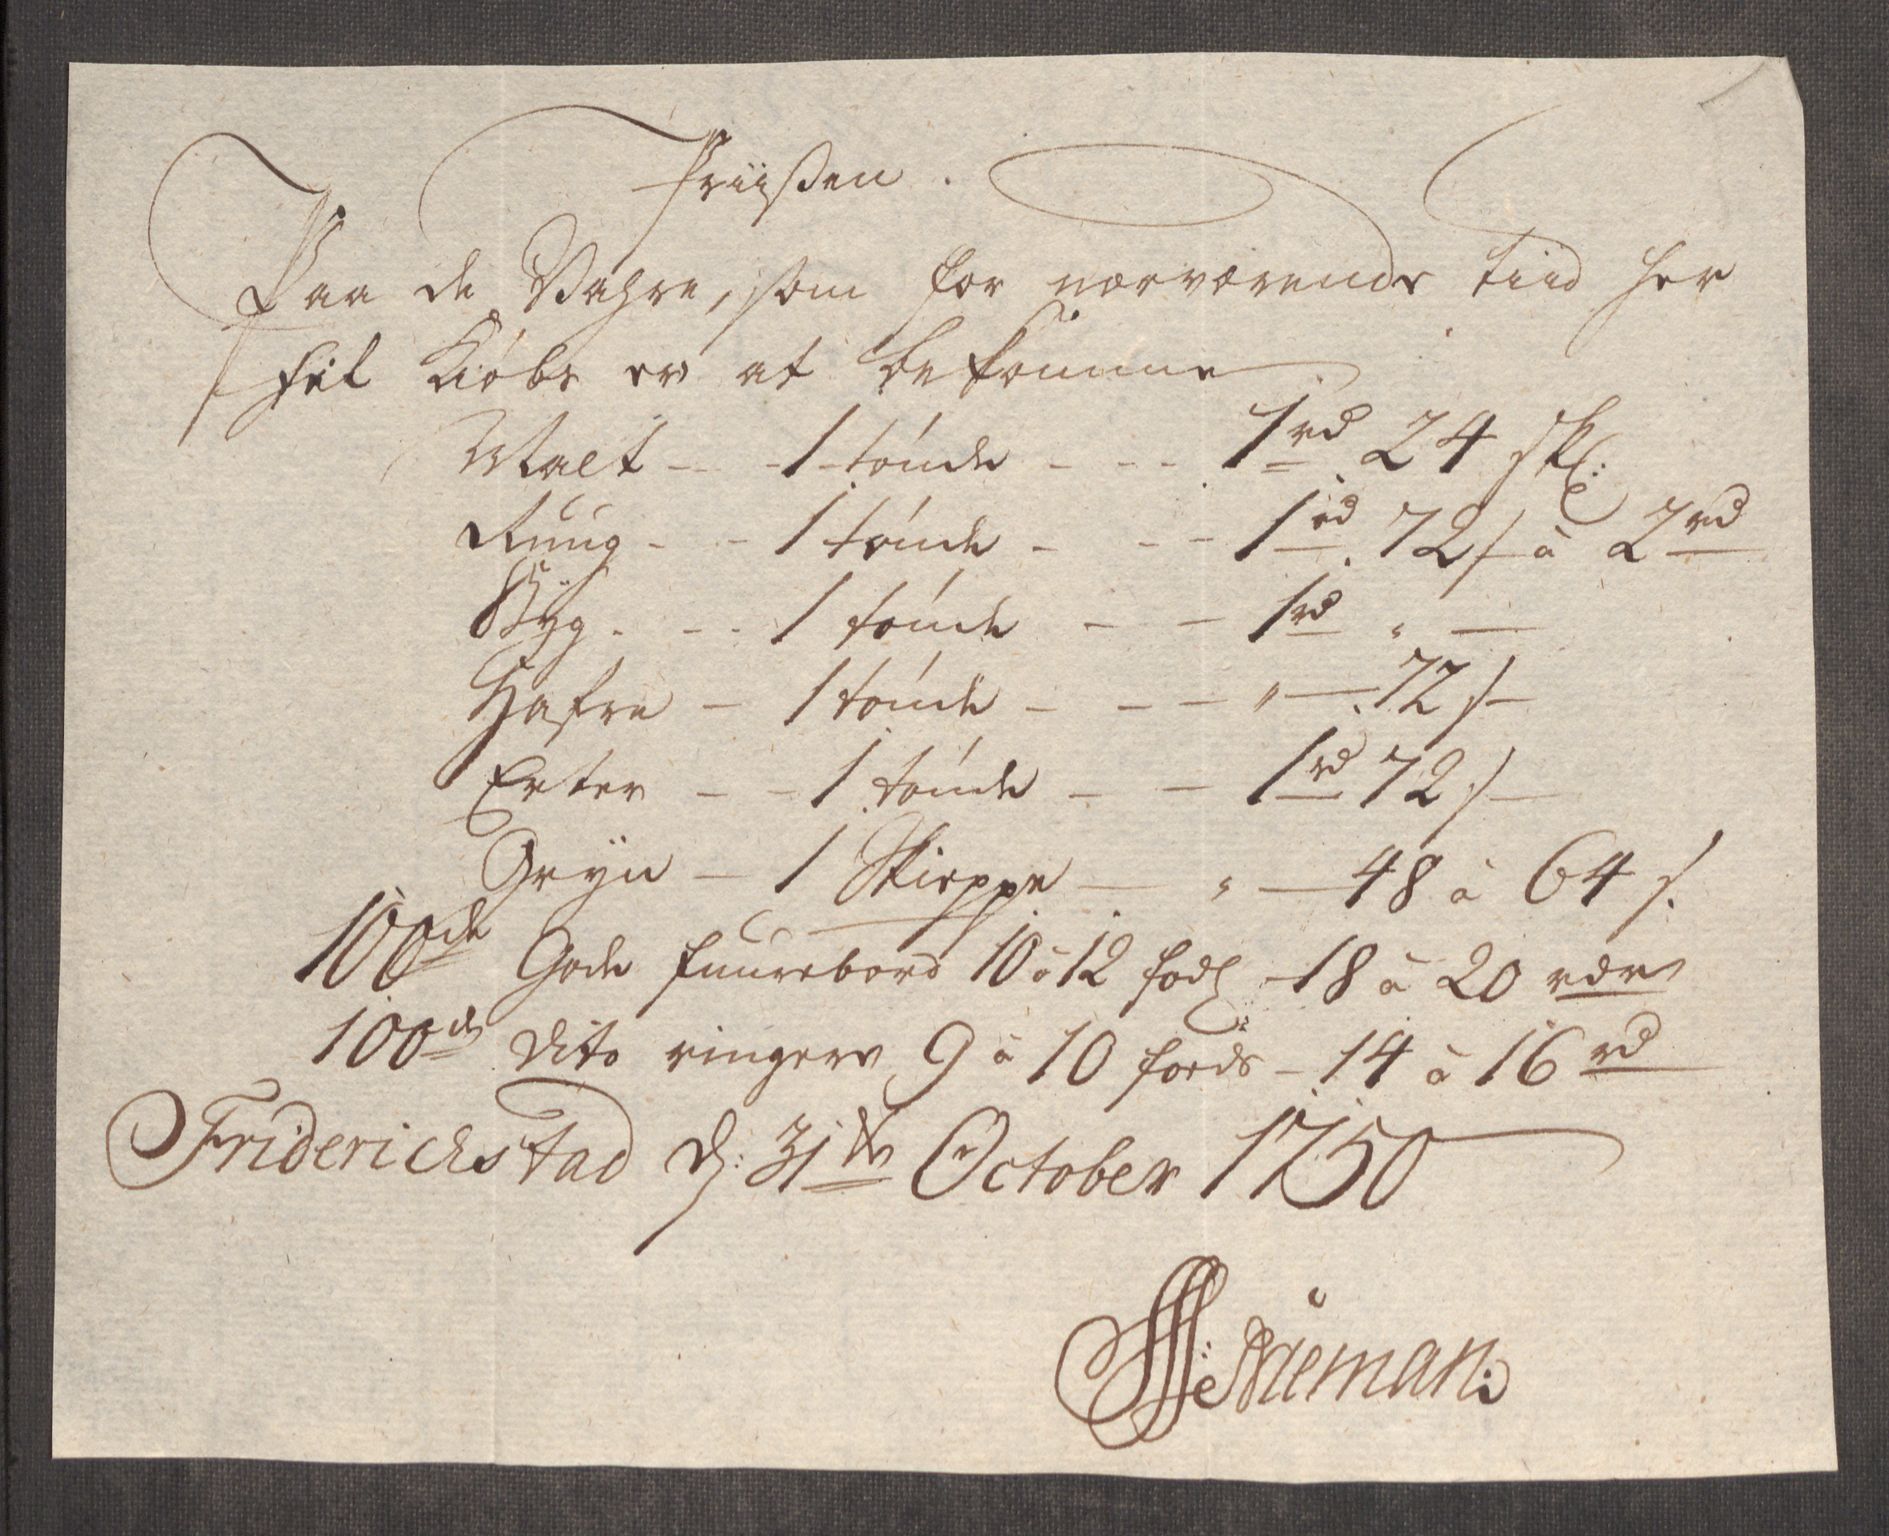 Priisen.
Paa de Vahre, som for nærværende tiid her
til Kiøbs er at bekomme
Malt - - 1 tønde - - - 1 rd 24 skl:
Rúúg - - 1 tønde - - - 1 rd 72 s à 2 rd
Byg - - - 1 tønde - - 1 rd " —
Hafre - 1 tønde - - - " — 72 s
Erter - - 1 tønde - - 1 rd 72 s
Gryn — 1 Skieppe — " — 48 à 64 s.
100de Gode fuurebord 10 à 12 fods - 18 à 20 rdr
100de dito ringere 9 à 10 foeds - 14 à 16 rd
Friderichstad d: 31te October 1750